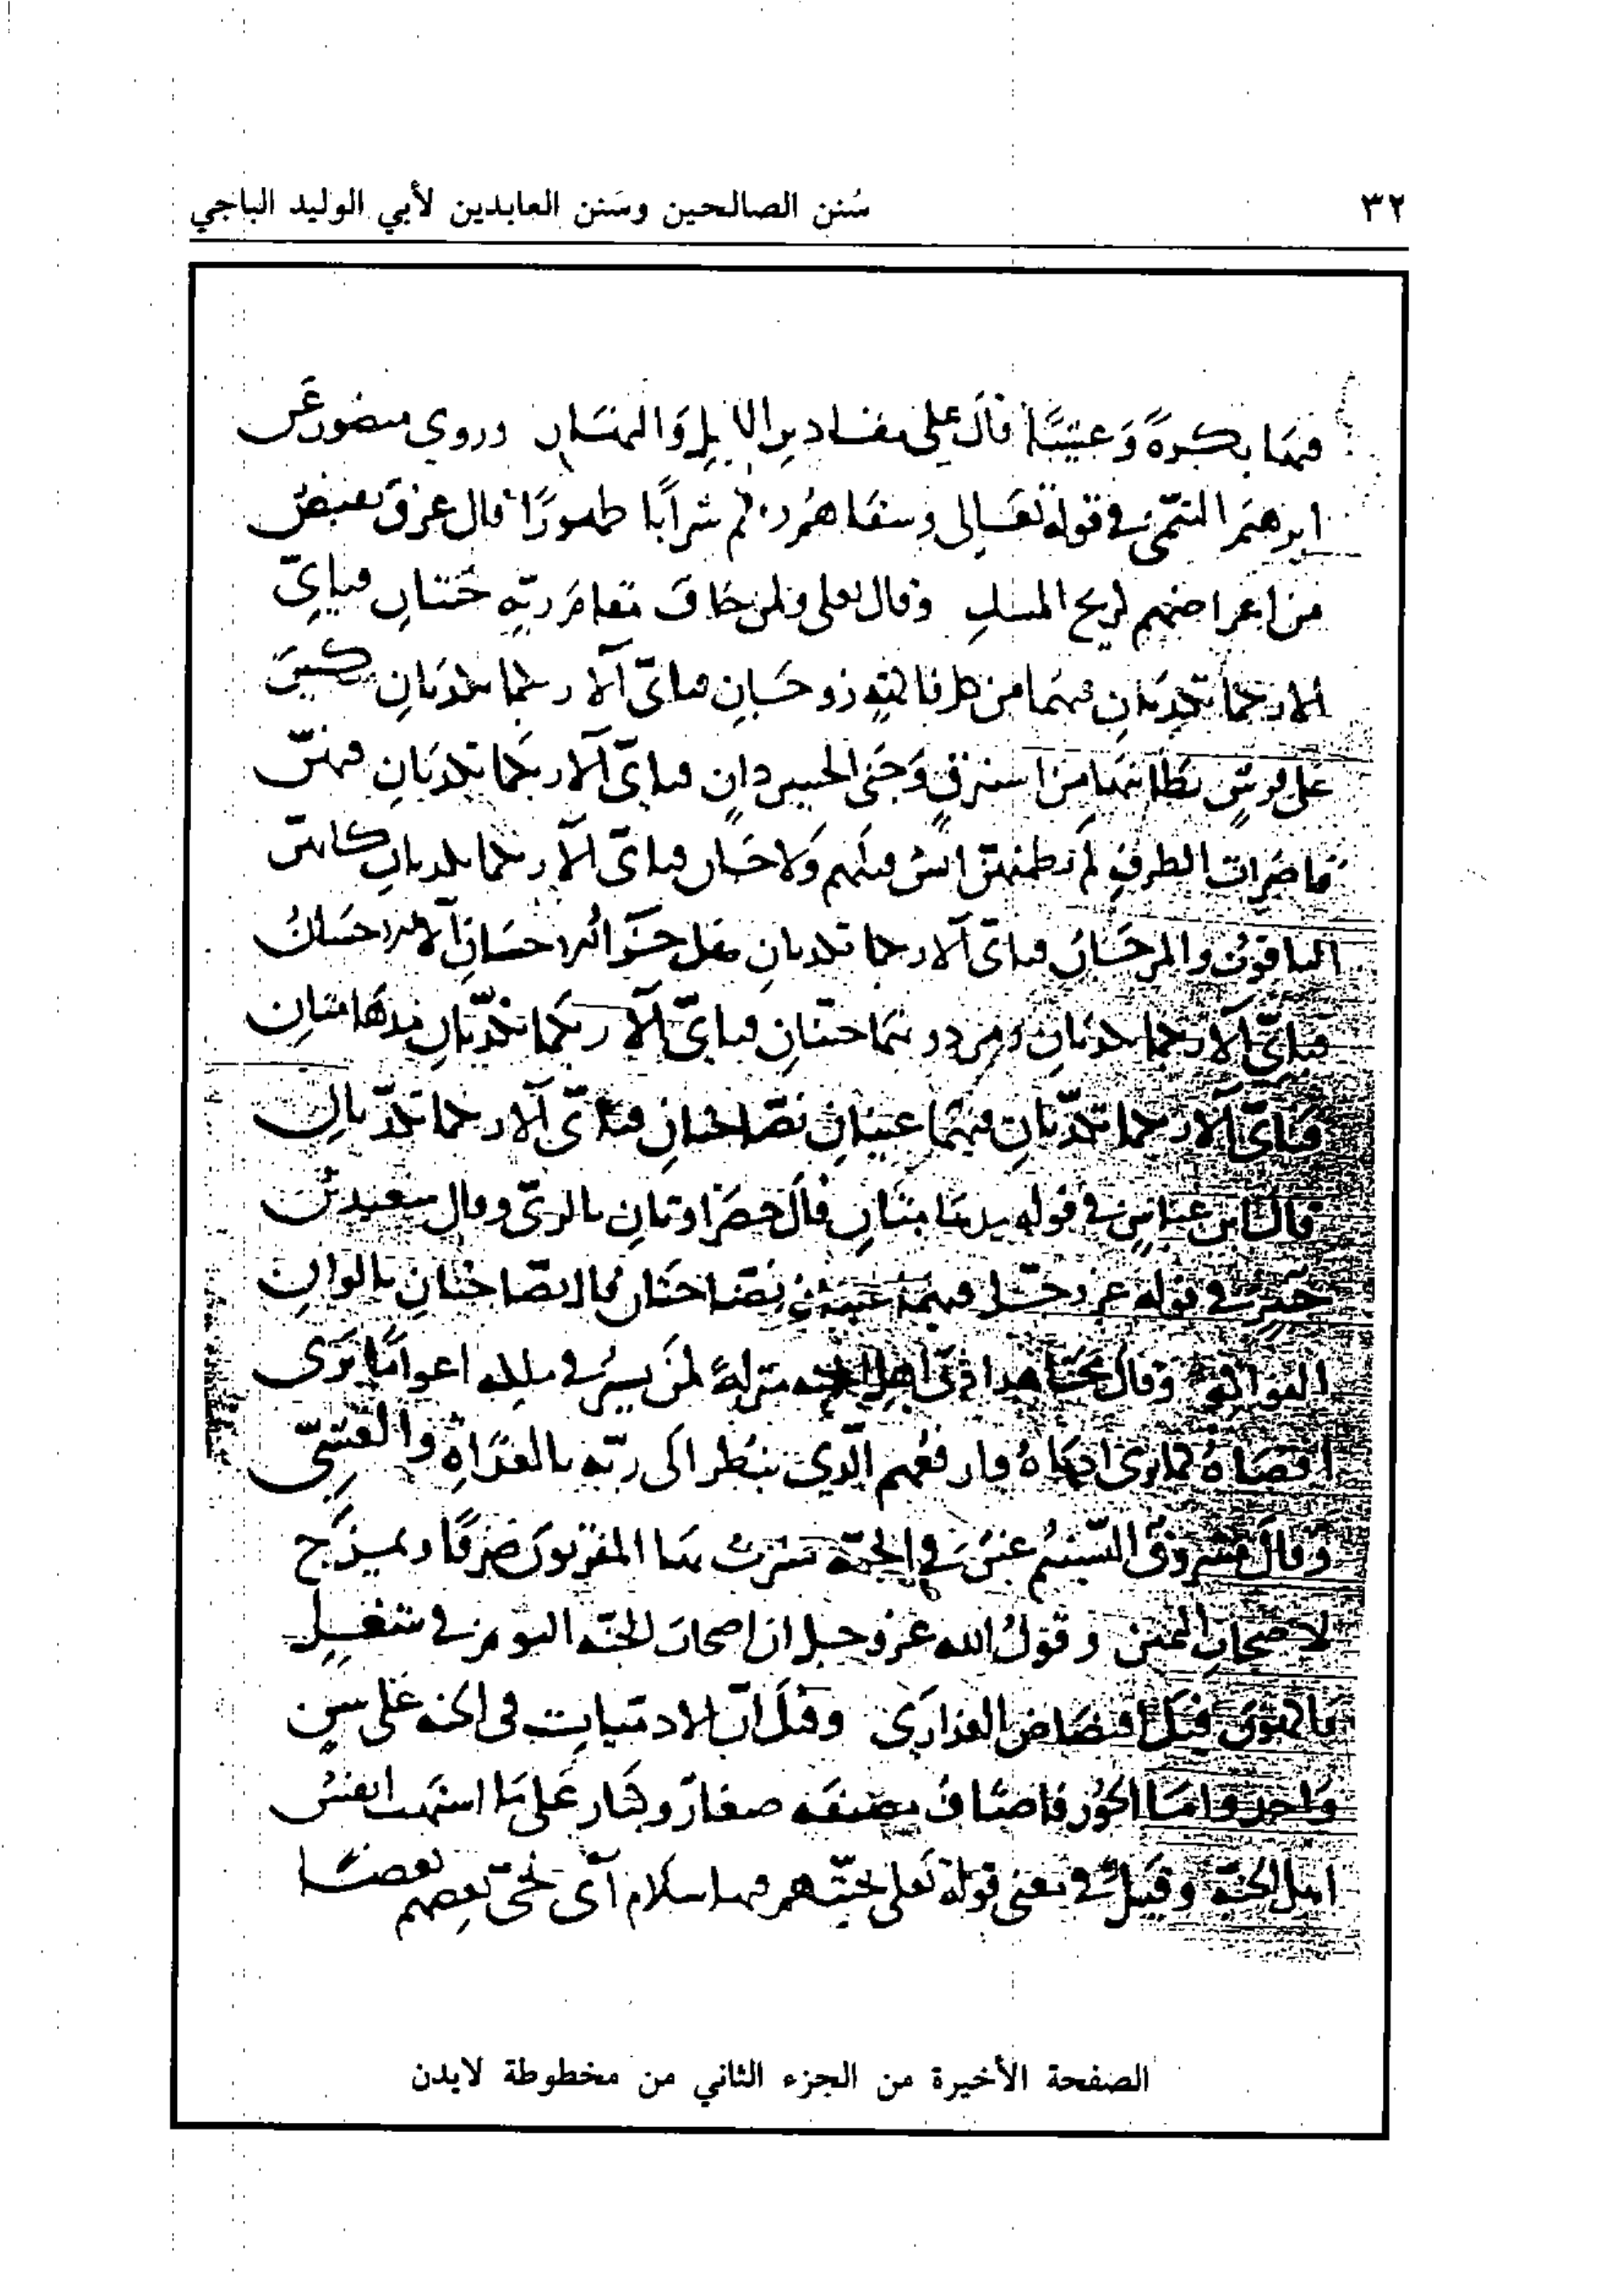 ٣٢
سُنن الصالحين وسَنن العابدين لأبي الوليد الباجي
فيها بكرةً وَعشيًّا قالَ على مقادير الليلِ وَالنهَار وروي منصور عَن
ابرهيم التيمي في قوله تعَالى وسقاهُم ربهم شرابًا طهورًا قال عرق يفيض
من اعراضهم كريح المسك وقال تعلى ولمن خاف مقام ربّه جنتان فباىّ
آلاء ربكما تكذبان فيهما من كل فاكهة زوجان فباىّ آلاء ربكما تكذبان متكئين
على فرشٍ بطائنها من استبرقٍ وَجنَى الجنتين دانٍ فباىّ آلاء ربكما تكذبان فيهنّ
قاصرات الطرفِ لم يطمثهن انس قبلهم وَلا جان فباىّ آلاء ربكما تكذبان كانهن
الياقوت والمرجَان فباىّ آلاء ربكما تكذبان هل جزَآء الاحسَان الا الاحسَانُ
فبايّ آلاء ربكما تكذبان ومن دونهما جنتان فبايّ آلاء ربكما تكذّبان مدهامتان
فباىّ آلاء ربكما تكذّبان فيهما عينان نضّاختان فباىّ آلاء ربكما تكذّبان
قال ابن عباس في قوله مدهامتان قالَ خضراوتان بالرىّ وقال سعيد بن
جبير في قوله عز وجَل فيهما عينان نضّاختان قال نضّاختان بالوان
الفواكه وقال مجَاهد ادنى اهل الجنه منزلةً لمن يسير في ملكه اعوامًا يَرَى
اقصَاهُ كما يرى ادنَاهُ وارفعهم الّذي ينظر الَى ربّه بالغدَاةِ والعَشىّ
وقال مسروق التسنيم عين في الجنّه يشرب بها المقربون صرفًا ويمزج
لاصحاب اليمين وقولُ الله عز وجل ان اصحابَ الجنّه اليوم في شغلٍ
فاكهون قيلَ افتضاض العذارَى وقيل انّ الادميات في الجنه عَلى سنٍ
وَاحد وامّا الحُور فاصنَاف مصنفَه صغار وكبَار عَلى مَا اشتهت انفس
اهل الجنّه وقيل في معنى قوله تعلى تحيّتهم فيها سلام آى يحيّ بعضهم بعضًا
الصفحة الأخيرة من الجزء الثاني من مخطوطة لايدن